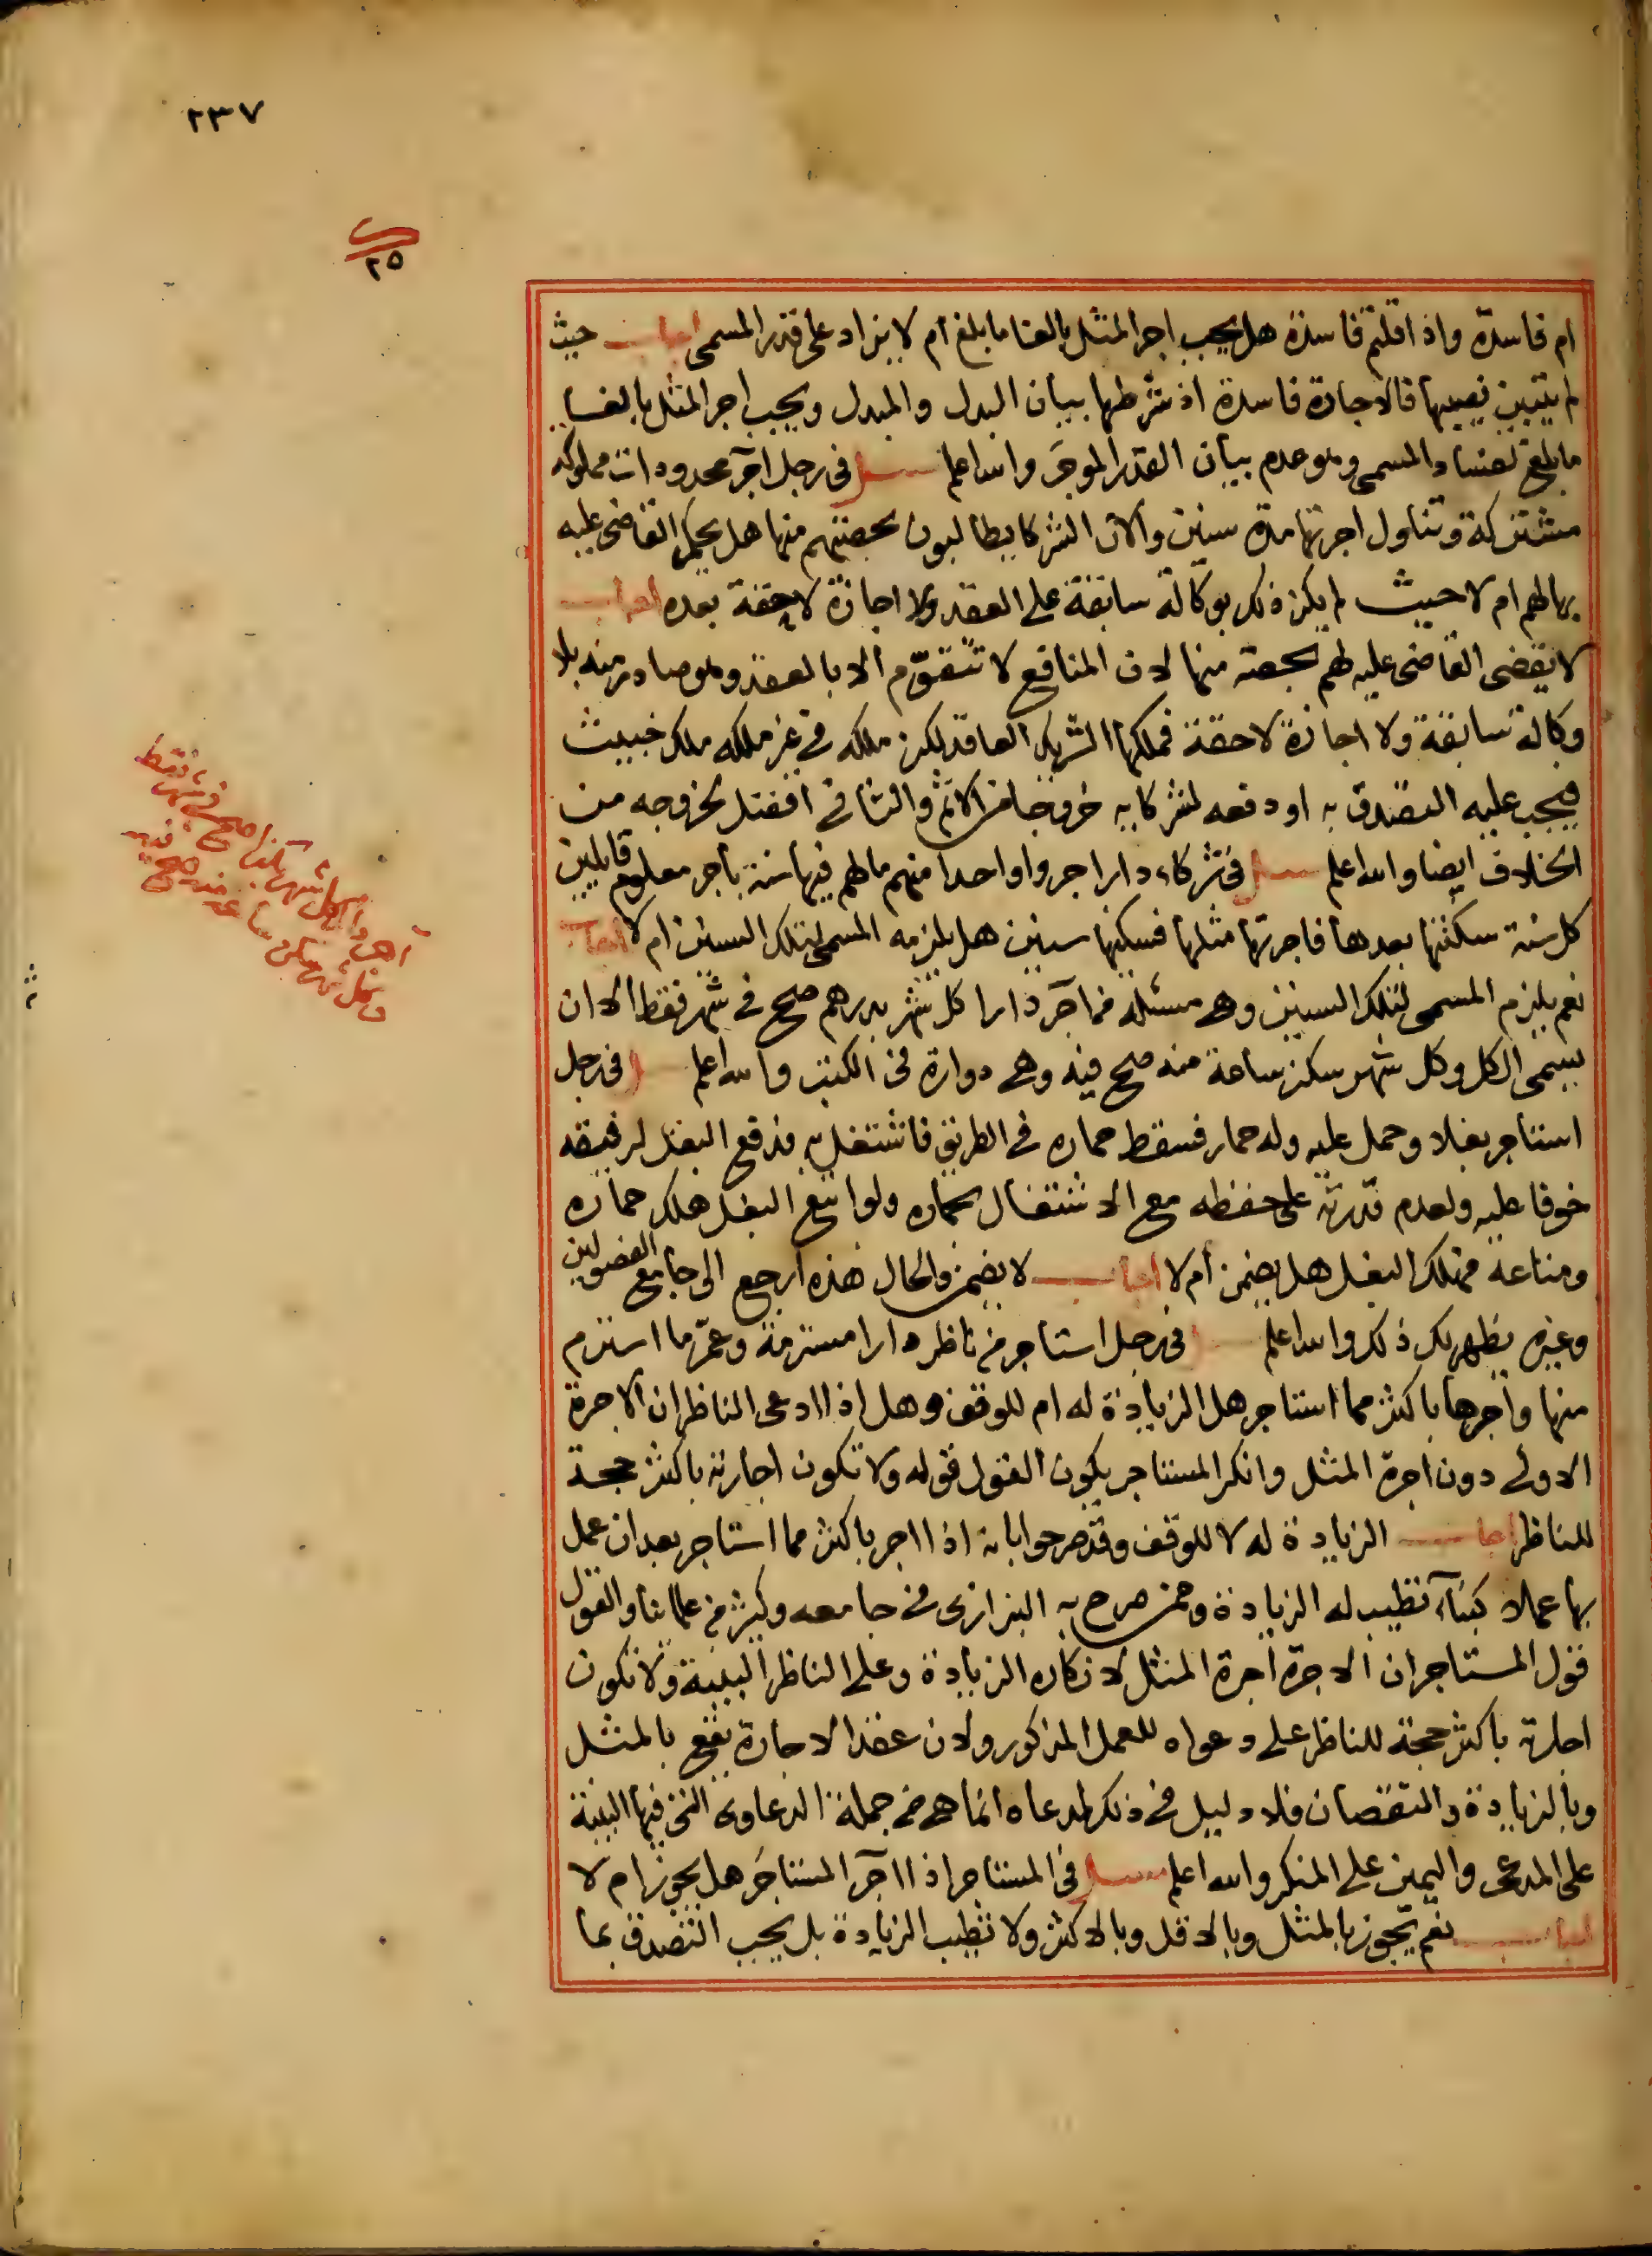 ٢٣٧
٢٥
ام فاسدة واذا قلتم فاسدة هل يجب اجر المثل بالغا ما بلغ ام لا يزاد على قدر المسمى اجاب حيث
لم يتبين نصيبها فالاجارة فاسدة اذ شرطها بيان البدل والمبدل ويجب اجر المثل بالغا
ما بلغ لفساد المسمى وهو عدم بيان القدر الموجر والله اعلم سئل في رجل آجر محدودات مملوكه
مشتركة وتناول اجرتها مدة سنين والآن الشركا يطالبون بحصتهم منها هل يحكم القاضى عليه
بها لهم ام لا حيث لم يكن ذلك بوكالة سابقة على العقد ولا اجازة لاحقة بعده اجاب
لا يقضى القاضى عليه لهم بحصته منها لان المنافع لا تتقوّم الا بالعقد وهو صادر منه بلا
وكالة سابقة ولا اجازة لاحقة فملكها الشريك العاقد لكن ملكه في غير ملكه ملك خبيث
فيجب عليه التصدق به او دفعه لشركايه خروجا من الاثم والثاني افضل لخروجه من
الخلاف ايضا والله اعلم سئل في شركاء دار اجروا واحدا منهم مالهم فيها سنة باجر معلوم قايلين
كل سنة سكنتها بعدها فاجرتها مثلها فسكنها سنين هل يلزمه المسمى لتلك السنين ام لا اجاب
نعم يلزم المسمى لتلك السنين وهى مسئلة من آجر دارا كل شهر بدرهم صح في شهر فقط الا ان
يسمى الكل وكل شهر سكن ساعة منه صح فيه وهى دوارة في الكتب والله اعلم سئل في رجل
استاجر بغلا وحمل عليه وله حمار فسقط حماره في الطريق فاشتغل به ودفع البغل لرفيقه
خوفا عليه ولعدم قدرته على حفظه مع الاشتغال بحماره ولو اتبع البغل هلك حماره
ومتاعه فهلك البغل هل يضمن ام لا اجاب لا يضمن والحال هذه ارجع الى جامع الفصولين
وغيره يظهر لك ذلك والله اعلم سئل في رجل استاجر من ناظر دارا مسترمة وعمّر ما استرم
منها وآجرها باكثر مما استاجر هل الزيادة له ام للوقف وهل اذا ادعى الناظر ان الاجرة
الاولى دون اجرة المثل وانكر المستاجر يكون القول قوله ولا تكون اجارته باكثر حجة
للناظر اجاب الزيادة له لا للوقف وقد صرحوا بانه اذا اجر باكثر مما استاجر بعد ان عمل
بها عملا كبناء تطيب له الزيادة وممن صرح به البزازى في جامعه وكثير من علمائنا والقول
قول المستاجر ان الاجرة اجرة المثل لانكاره الزيادة وعلى الناظر البينة ولا تكون
اجارته باكثر حجة للناظر على دعواه للعمل المذكور ولان عقد الاجارة يقع بالمثل
وبالزيادة والنقصان فلا دليل في ذلك لمدعاه انما هى من جملة الدعاوى التى فيها البينة
على المدعى واليمين على المنكر والله اعلم سئل في المستاجر اذا آجر المستاجَر هل يجوز ام لا
اجاب نعم يجوز بالمثل وبالاقل وبالاكثر ولا تطيب الزيادة بل يجب التصدق بما